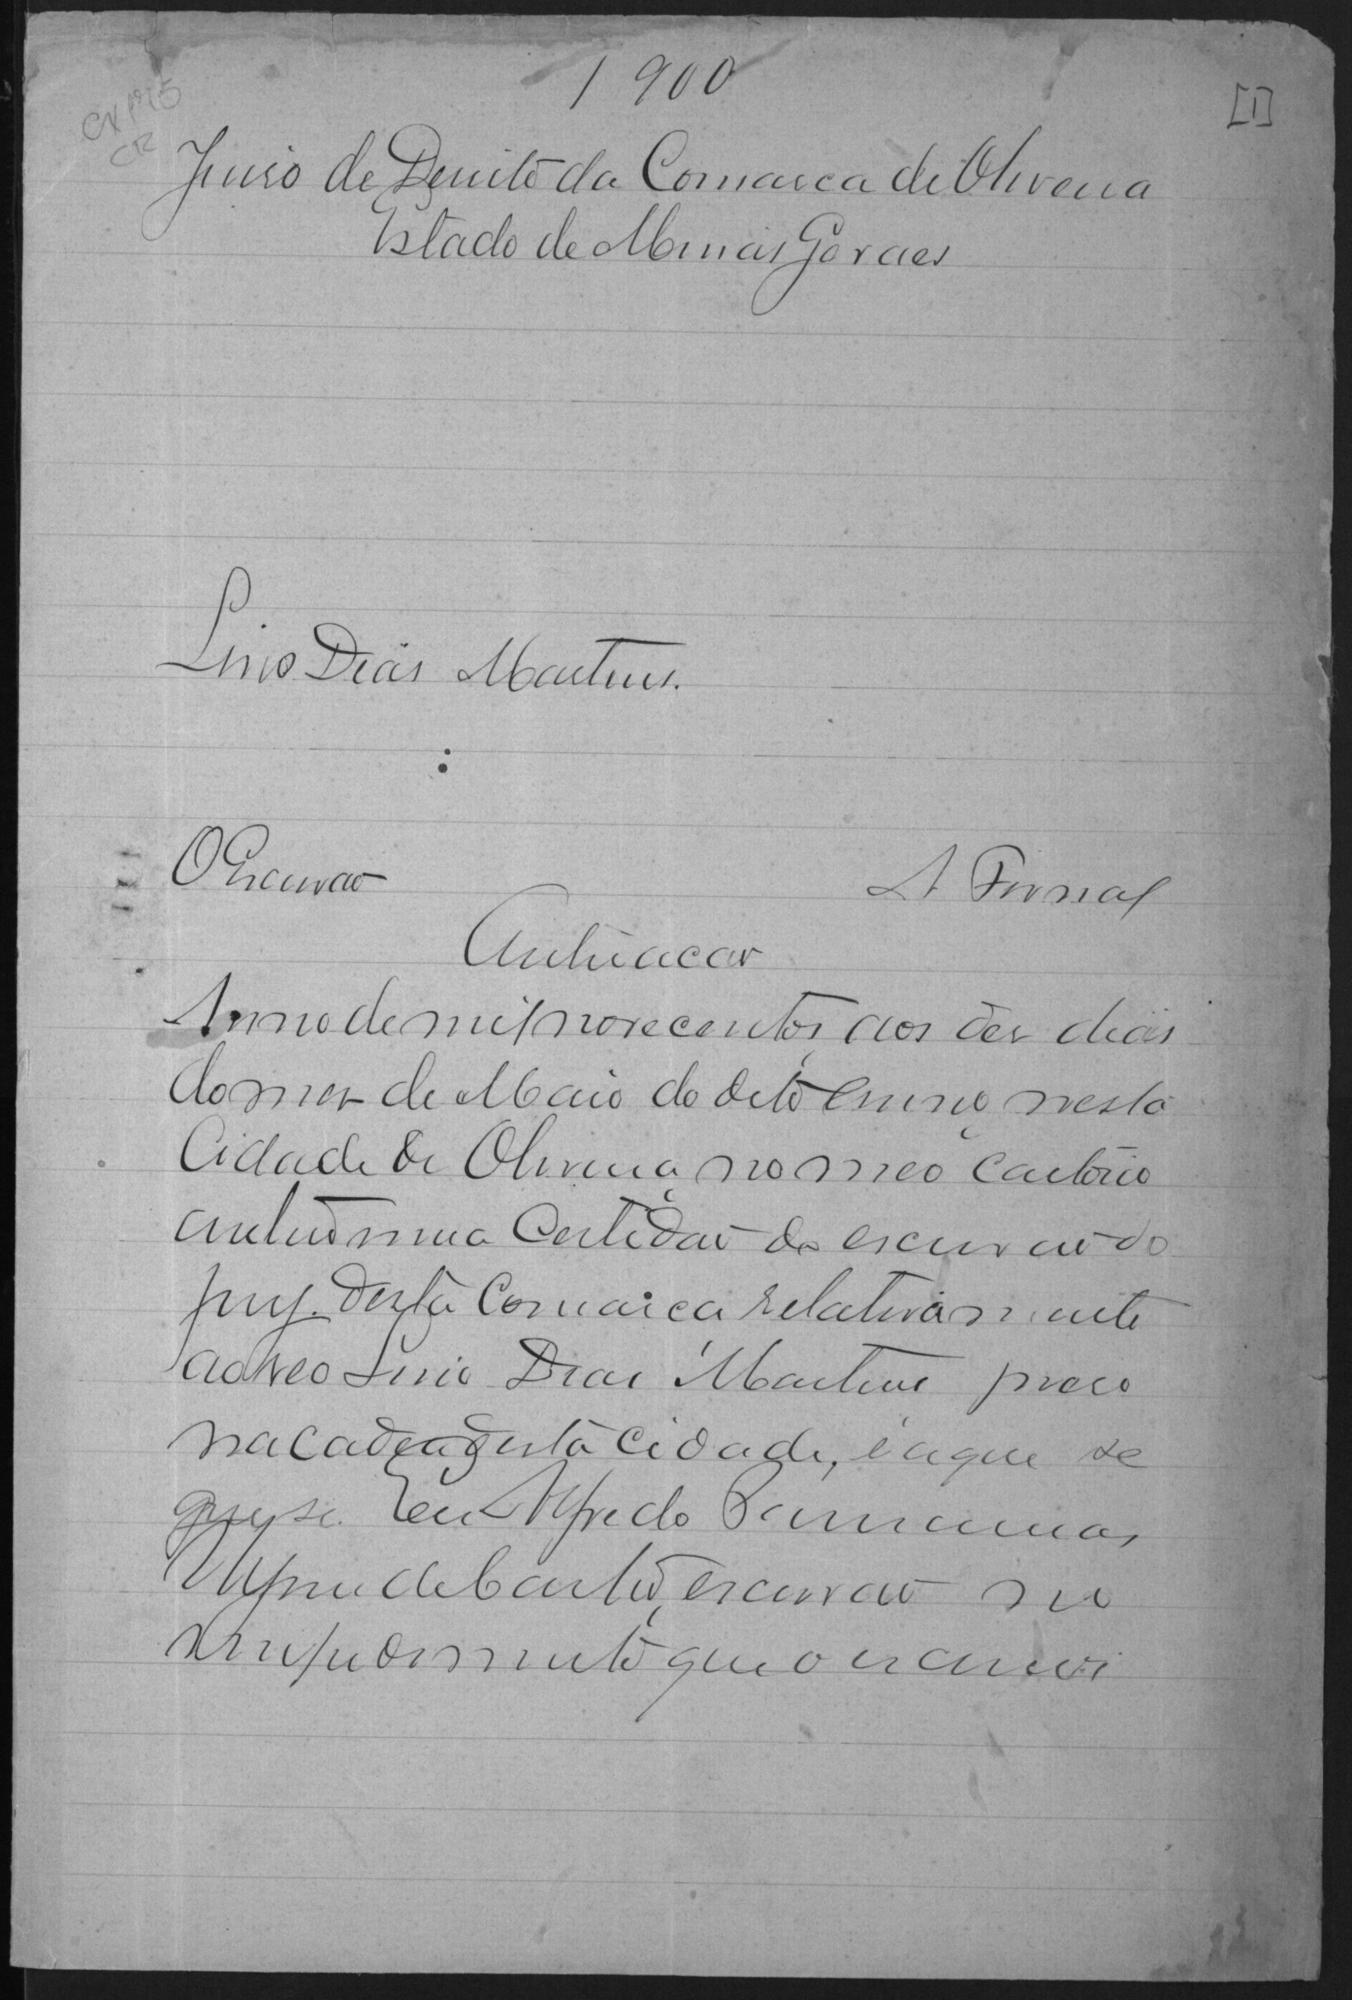 1900
[1]
CX 195
CR
Juiso de Dereito da Comarca de Oliveira
Estado de Minas Geraes
Lino Dias Martins.
O Escrivão
Autuação
Anno de mil novecentos, aos dez dias
do mez de Maio do dito anno, nesta
Cidade de Oliveira no meo cartorio
autuo uma certidão do escrivão do
jury desta Comarca relativamente
ao reo Lino Dias Martins preso
na cadea desta cidade, é a que se
gue se. Eu Alfredo
de Castro, escrivão no
impedimento que o escrevi